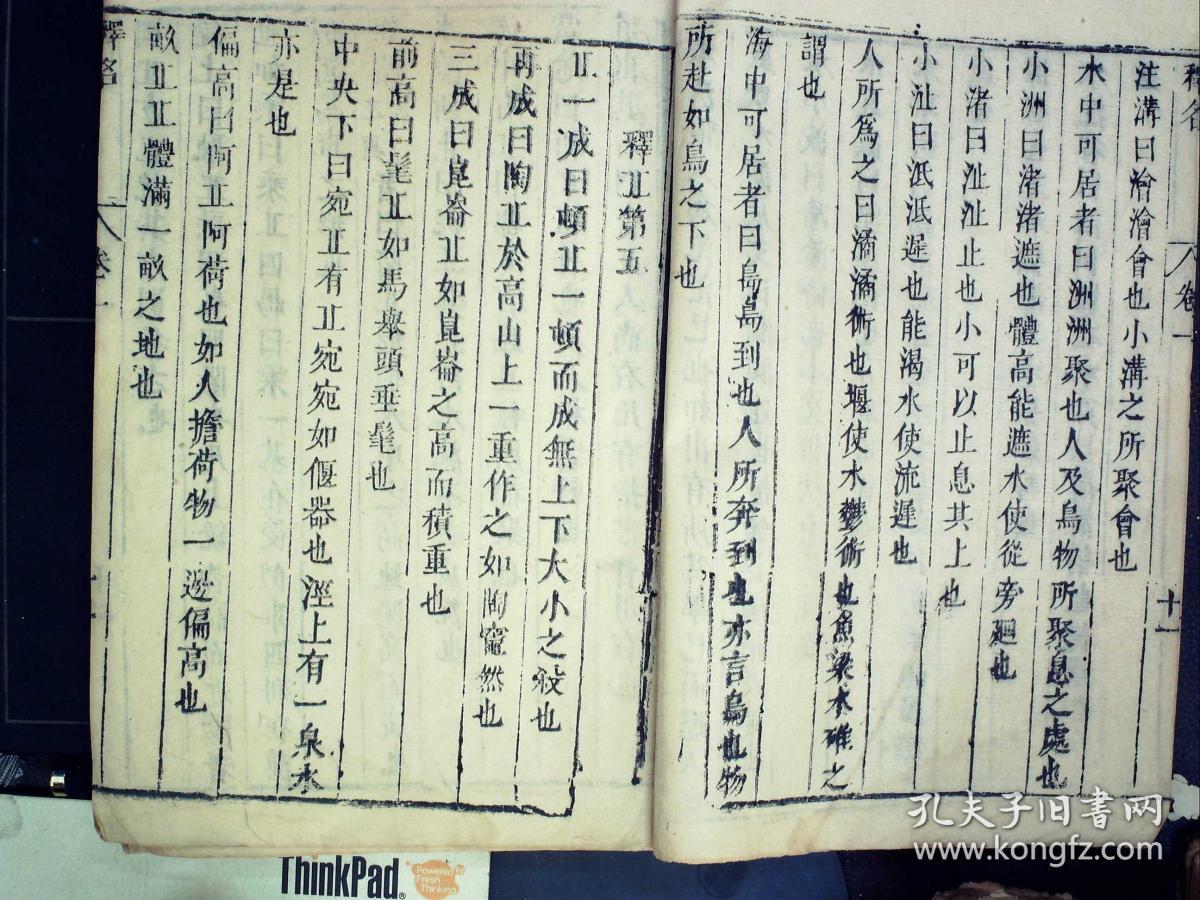 釋名
卷一
十一
注溝曰澮澮會也小溝之所聚會也
水中可居者曰洲洲聚也人及鳥物所聚息之處也
小洲曰渚渚遮也體高能遮水使從旁廻也
小渚曰沚沚止也小可以止息其上也
小沚曰泜泜遲也能遏水使流遲也
人所爲之曰潏潏術也堰使水鬱術也魚梁水碓之
謂也
海中可居者曰島島到也人所奔到也亦言鳥也物
所赴如鳥之下也
釋丘第五
丘一成曰頓丘一頓而成無上下大小之殺也
再成曰陶丘於高山上一重作之如陶竈然也
三成曰崑崙丘如崑崙之高而積重也
前高曰髦丘如馬舉頭垂髦也
中央下曰宛丘有丘宛宛如偃器也涇上有一泉水
亦是也
偏高曰阿丘阿荷也如人擔荷物一邊偏高也
畝丘丘體滿一畝之地也
釋名
卷一
ThinkPad
Powered
Fresh
Thinking
孔夫子旧书网
www.kongfz.com